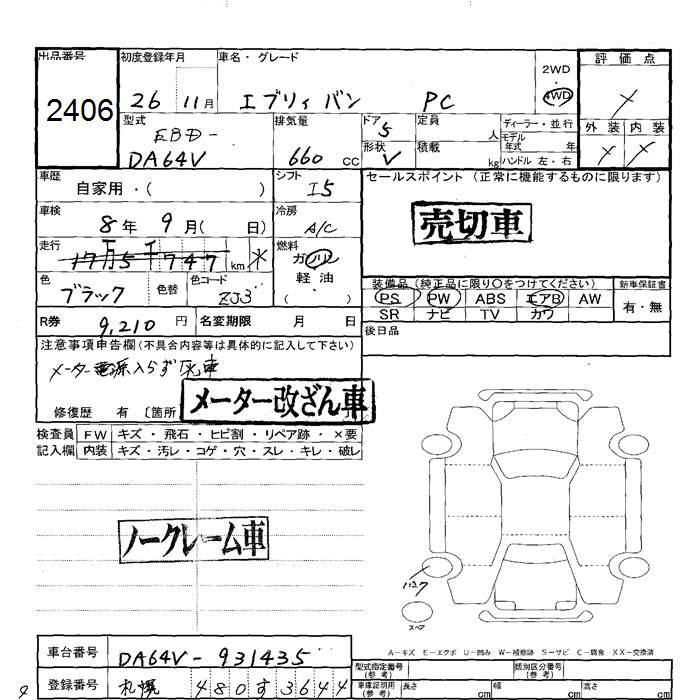 出品番号 初度登録年月 車名・グレード 2WD 評価点
2406 26 11月 エブリィ バン PC 4WD
型式 排気量 ドア 定員 ディーラー・並行 外装 内装
EBD- 5 人 モデル
DA64V 660 cc 形状 V 積載 kg 年式 年
ハンドル 左・右
車歴 シフト セールスポイント(正常に機能するものに限ります)
自家用・( ) I5
車検 冷房 売切車
8年 9月( 日) A/C
走行 燃料
17万5千747 km * ガソリン
色 色替 色コード 軽油 装備品(純正品に限り○をつけてください) 新車保証書
ブラック ZJ3 ( ) PS PW ABS エアB AW 有・無
SR ナビ TV カワ
R券 9,210 円 名変期限 月 日 後日品
注意事項申告欄(不具合内容等は具体的に記入して下さい)
メーター電源入らず 車
メーター改ざん車
修復歴 有 〔箇所
検査員 FW キズ・飛石・ヒビ割・リペア跡・×要
記入欄 内装 キズ・汚レ・コゲ・穴・スレ・キレ・破レ
ノークレーム車
パンク
スペア
A-キズ E-エクボ U-凹み W-補修跡 S-サビ C-腐食 XX-交換済
車台番号 DA64V-931435 型式指定番号(参考) 類別区分番号(参考)
登録番号 札幌 480す3644 車庫証明用(参考) 長さ cm 幅 cm 高さ cm